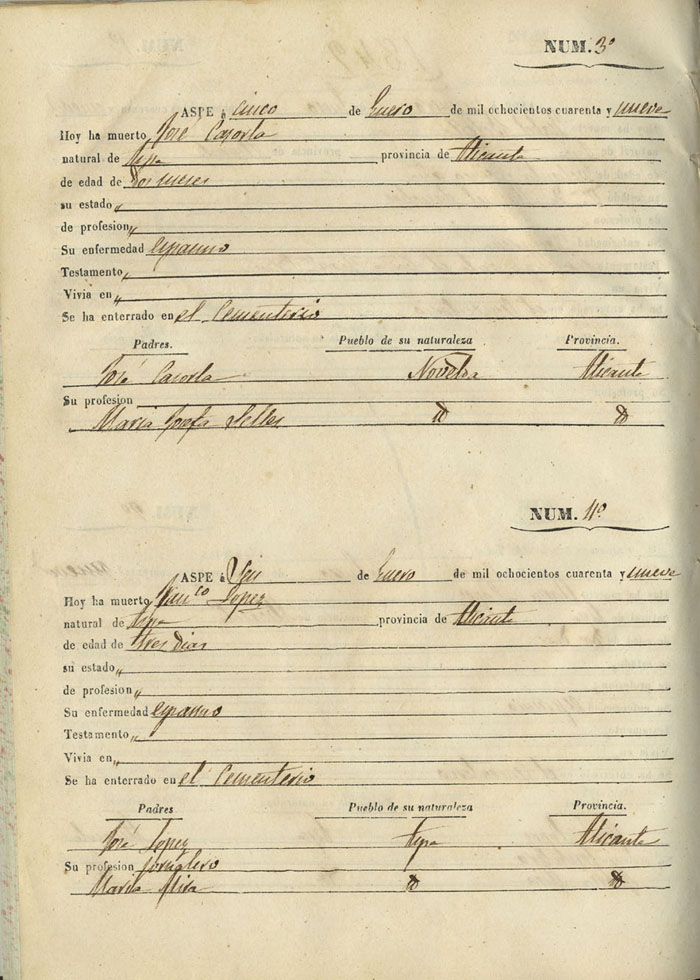 NUM. 3º
ASPE á cinco de Enero de mil ochocientos cuarenta y nueve
Hoy ha muerto José Cazorla
natural de Aspe provincia de Alicante
de edad de dos meses
su estado "
de profesion "
Su enfermedad espasmo
Testamento "
Vivia en "
Se ha enterrado en el Cementerio
Padres. Pueblo de su naturaleza Provincia.
José Cazorla Novelda Alicante
Su profesion
Maria Josefa Selles id id
NUM. 4º
ASPE á Seis de Enero de mil ochocientos cuarenta y nueve
Hoy ha muerto Lopez
natural de Aspe provincia de Alicante
de edad de tres dias
su estado "
de profesion "
Su enfermedad espasmo
Testamento "
Vivia en "
Se ha enterrado en el Cementerio
Padres Pueblo de su naturaleza Provincia.
Jose Lopez Aspe Alicante
Su profesion Jornalero
Maria Mira id id